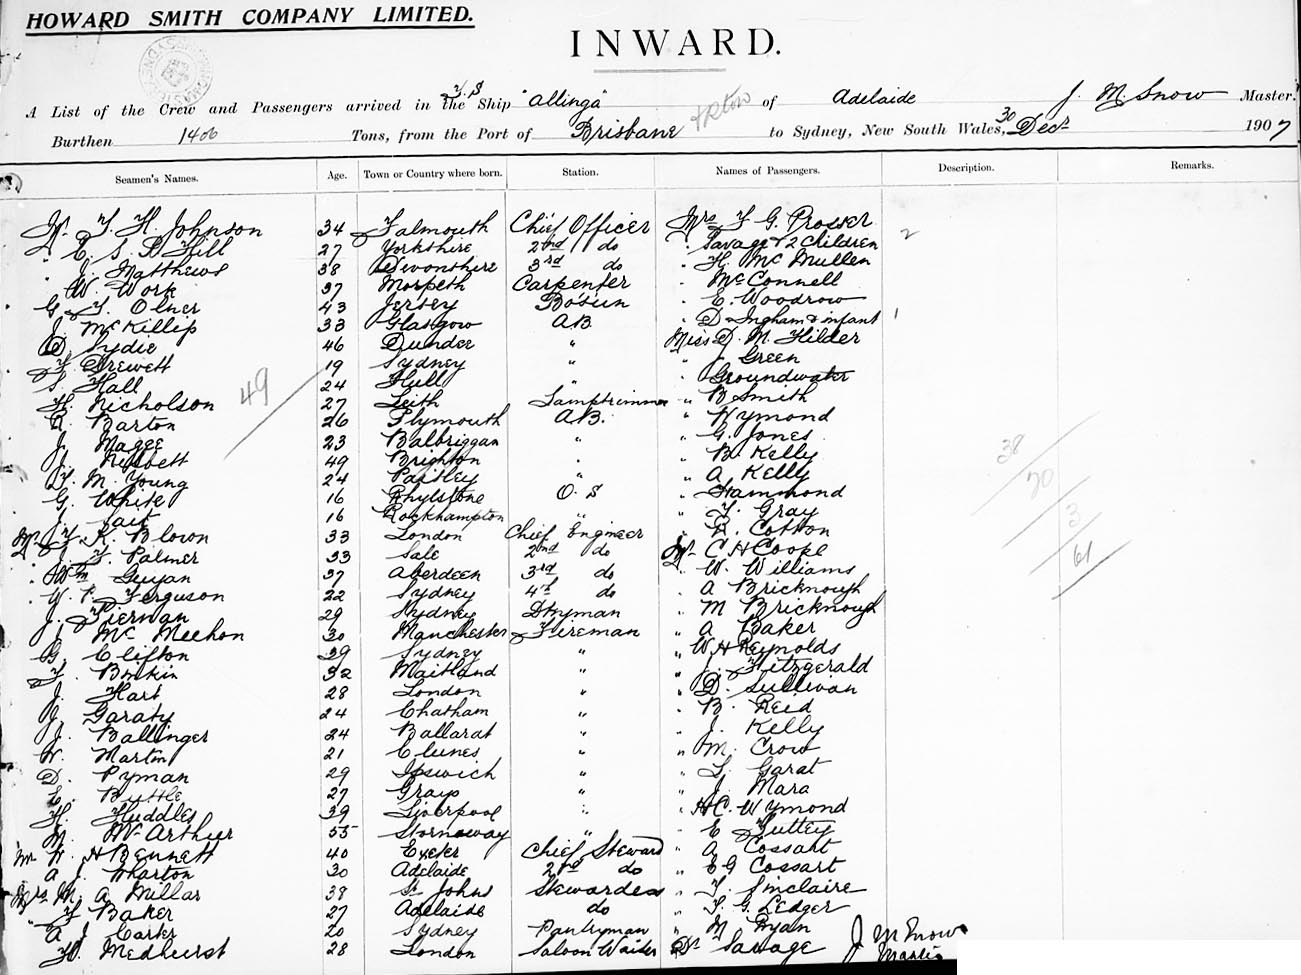 HOWARD SMITH COMPANY LIMITED.
INWARD.
A List of the Crew and Passengers arrived in the S.S Ship "Allinga" of Adelaide J. M. Snow Master.
Burthen 1400 Tons, from the Port of Brisbane to Sydney, New South Wales, 30 Decr 1907
Seamen's Names. Age. Town or Country where born. Station. Names of Passengers. Description. Remarks.
Mr F. H. Johnson 34 Falmouth Chief Officer Mrs F G Prosser
" E S B Hill 27 Yorkshire 2nd do " Savage & 2 Children 2
" J. Matthews 38 Devonshire 3rd do " H. Mc Mullen
W. Work 37 Morpeth Carpenter " McConnell
G. F. Olner 43 Jersey Bosun " E. Woodrow
J. McKillip 33 Glasgow A.B. " D Ingham & infant 1
D Lydie 46 Dundee " Miss D. M. Hilder
F Drewett 19 Sydney " " J Green
S. Hall 24 Hull " " Groundwater
H. Nicholson 27 Leith Lamptrimmer " B Smith
R. Barton 26 Plymouth A.B. " Wymond
J. Magee 23 Balbriggan " " G. Jones
J Nesbett 49 Brighton " " B. Kelly
F. M. Young 24 Paisley " A Kelly
G. White 16 Rhylstone O. S " Hammond
J. Tait 16 Rockhampton " " F. Gray
Mr J. K. Blown 33 London Chief Engineer " R. Cotton
" J. F. Palmer 33 Sale 2nd do Mr C H Cooke
" Wm Guyan 37 Aberdeen 3rd do " W. Williams
" W. F. Ferguson 22 Sydney 4th do " A Bricknough
J. Kierwan 29 Sydney Dkyman " M Bricknough
J Mc Meehon 30 Manchester Fireman " A Baker
G. Clifton 39 Sydney " " W H Reynolds
F. Brekin 32 Maitland " " J. Fitzgerald
J. Hart 28 London " " D. Sullivan
J. Garaty 24 Chatham " " B. Reid
J. Ballinger 24 Ballarat " " J. Kelly
W. Martin 21 Clunes " " M. Crow
D. Pyman 29 Ipswich " " L. Garat
E. Buttle 27 Grays " " J Mara
H. Huddles 39 Liverpool " " H.C. Wymond
M. McArthur 55 Stornoway " " E Tuttey
Mr W. H Bennett 40 Exeter Chief Steward " A Cossart
A J. Wharton 30 Adelaide 2nd do " E G Cossart
Mrs M. A Millar 38 St Johns Stewardess " F. Sinclaire
" F Baker 27 Adelaide do " T. G. Ledger
A J Carter 20 Sydney Pantryman " M Ryan
H. Medhurst 28 London Saloon Waiter Dr Savage J M Snow
Master
49
38
20
3
61